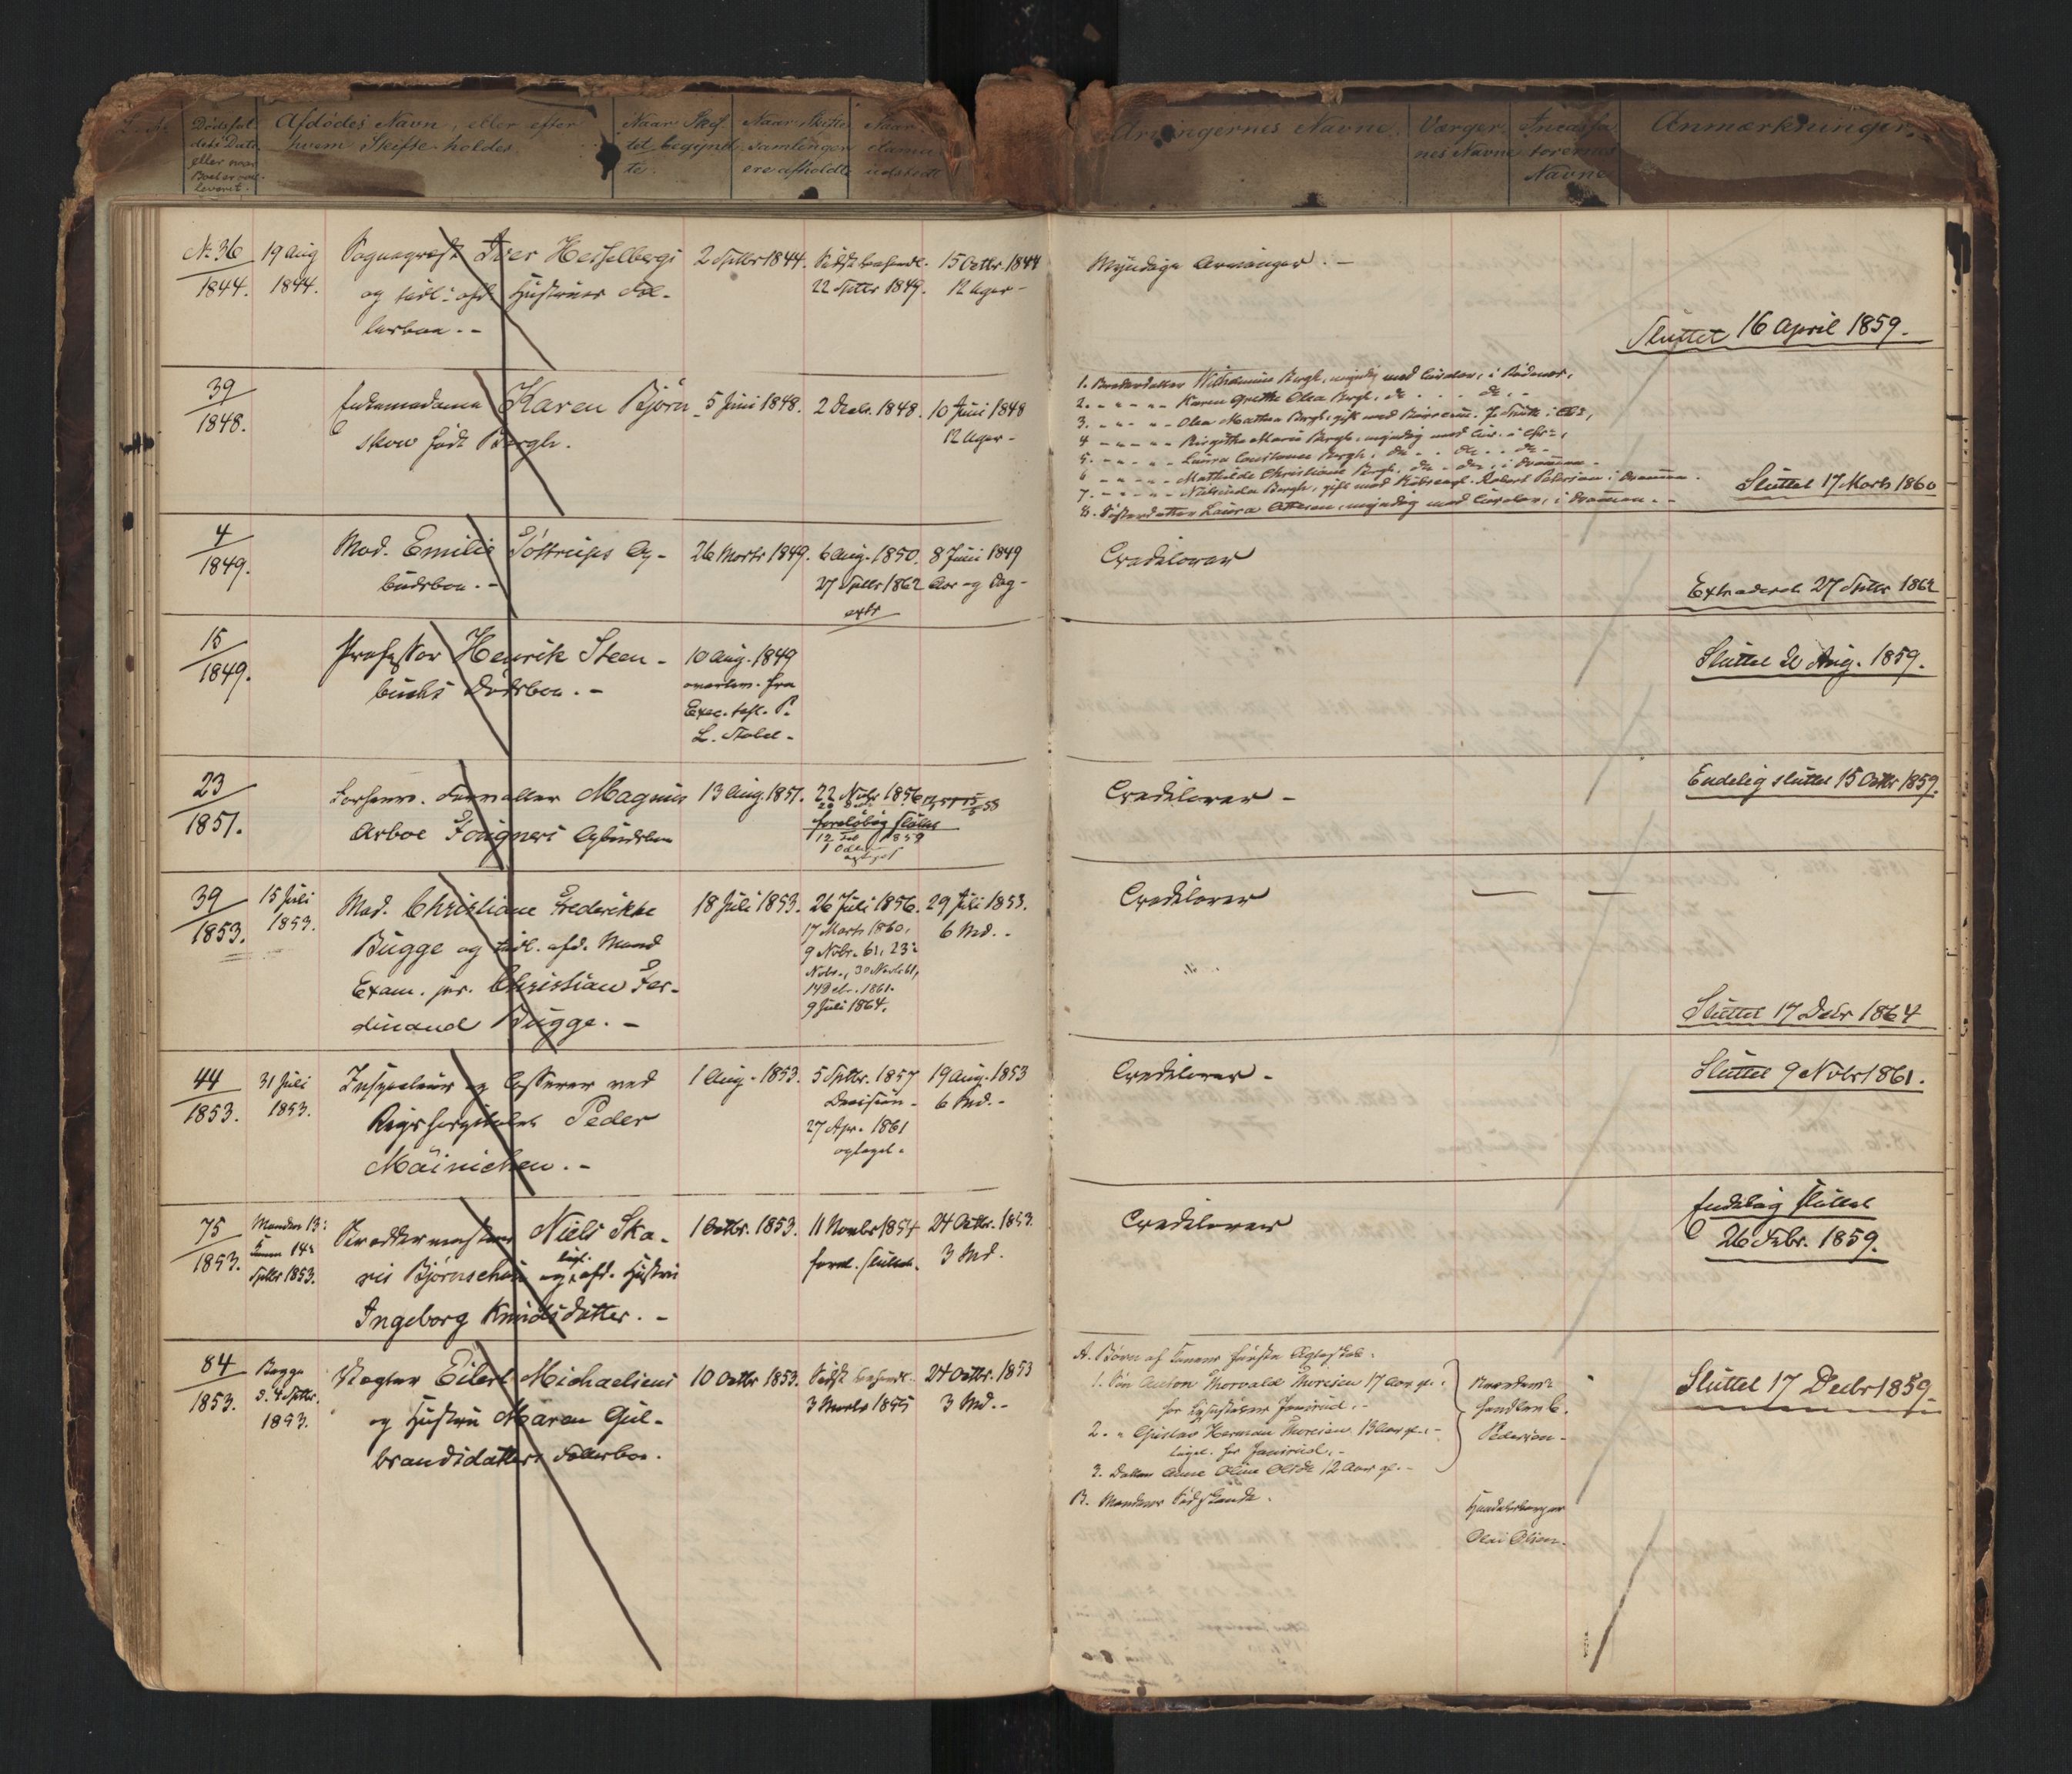 Dødsfal-
dets Dato
eller naar
Boet er
leveret.
Afdødes Navn, eller efter
hvem Skifte holdes.
Naar Skif-
tet begynd-
te.
Naar Skifte
samlinger
ere afholdte
Naar
udstedt
Arvingernes Navne.
Værger-
nes Navne
Incassa-
torernes
Navne
Anmærkninger.
No 36
1844.
19 Aug
1844.
Sognepræst Iver Hesselbergs
og tidl. afd. Hustrues Fæl-
lesboe. -
2 Septbr 1844.
Sidst behandl.
22 Septbr 1849.
15 Octbr. 1844
12 Uger -
Myndige Arvinger. -
Sluttet 16 April 1859.
39
1848.
Enkemadame Karen Bjørn-
skow født Bergh.
5 Juni 1848.
2 Decbr. 1848.
10 Juni 1848
12 Uger -
1. Broderdatter Wilhelmine Bergh, myndig med Curator, i
2. - - - - - Karen Grethe Olea Bergh, do . . . do. -
3. - - - - - Olea Mathea Bergh, gift med
4 - - - - - Birgithe Marie Bergh, myndig med Cur. i
5. - - - - - Laura Constance Bergh, do - - do - - do -
6 - - - - - Mathilde Christiane Bergh, do - do, i Drammen -
7. - - - - - Bergh, gift med Robert Petersen i Drammen.
8. Søsterdatter Laura Ottesen, myndig med Curator, i Drammen. -
Sluttet 17 Marts 1860
4
1849.
Mad. Emilie Tostrups Op-
budsboe. -
26 Marts 1849.
6 Aug. 1850.
27 Septbr 1862
extr
8 Juni 1849
Aar og Dag -
Creditorer
Extraderet 27 Septbr 1862
15
1849.
Professor Henrik Steen-
buchs Dødsboe. -
10 Aug. 1849
overlev. fra
Exec. test. P.
L. Stabel -
Sluttet 20 Aug. 1859.
23
1851.
forhenv. Forvalter Magnus
Arboe Fougners Opbudsboe
13 Aug. 1851.
22 Novbr 1856
foreløbig sluttet
12 1859
Creditorer -
Endelig sluttet 15 Octbr 1859.
39
1853.
15 Juli
1853.
Mad. Christiane Frederikke
Bugge og tidl. afd. Mand
Exam. jur. Christian Fer-
dinand Bugge. -
18 Juli 1853.
26 Juli 1856.
17 Marts 1860,
9 Novbr. 61, 23
Novbr., 30 Novbr 61,
14 Dcbr. 1861.
9 Juli 1864.
29 Juli 1853.
6 Md. -
Creditorer
Sluttet 17 Decbr 1864
44
1853.
31 Juli
1853.
Inspecteur og Casserer ved
Rigshospitalet Peder
Mäinichen. -
1 Aug. 1853.
5 Septbr. 1857
Decision -
27 Apr. 1861
optaget.
19 Aug. 1853
6 Md. -
Creditorer -
Sluttet 9 Novbr 1861.
75
1853.
Manden 13
Konen 14
Septbr 1853.
Skræddermester Niels Ska-
ris Bjørnsches og ligl. afd. Hustru
Ingeborg Knudsdatter. -
1 Octbr. 1853.
11 Novbr 1854
forel. sluttet.
24 Octbr. 1853.
3 Md.
Creditorer
Endelig sluttet
26 Febr. 1859.
84
1853.
Begge
d. 4 Septbr.
1853.
Vægter Eilert Michaelsens
og Hustru Maren Gul-
brandsdatters Fællesboe.
10 Octbr 1853.
Sidst behandl.
3 Marts 1855
24 Octbr. 1853
3 Md. -
A. Børn af Konens første Ægteskab:
1. Søn Anton Thorvald Thoresen 17 Aar gl.
2. - Herman Thoresen 13 Aar gl. -
3. Datter Anne Oline 12 Aar gl. -
handler C.
Pedersen -
B. Mandens Sødskende.
Olsen.
Sluttet 17 Decbr 1859.